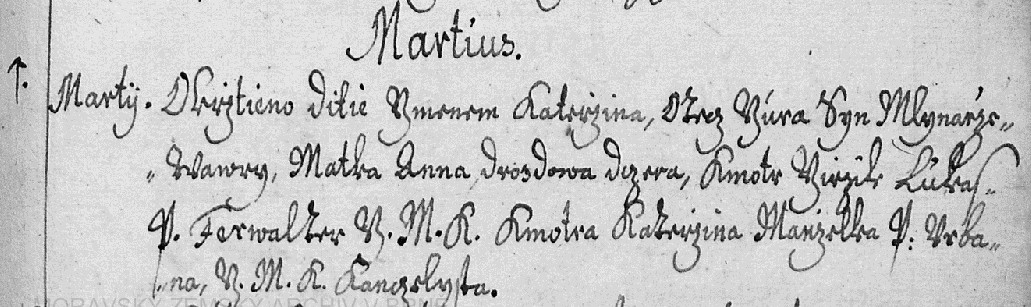 Martius.
1. Martij. Okrztieno ditie Ymenem Katerzina, Otecz Yúra Syn Mlynarze„
„ Wawry, Matka Anna drozdowa dczera, Kmotr Yirzik Lukaſ„
P. Ferwalter Y. M. K. Kmotra Katerzina Manzelka P: Vrba„
„na, Y. M. K. Kanczelysta.
MORAVSKÝ ZEMSKÝ ARCHIV V BRNĚ